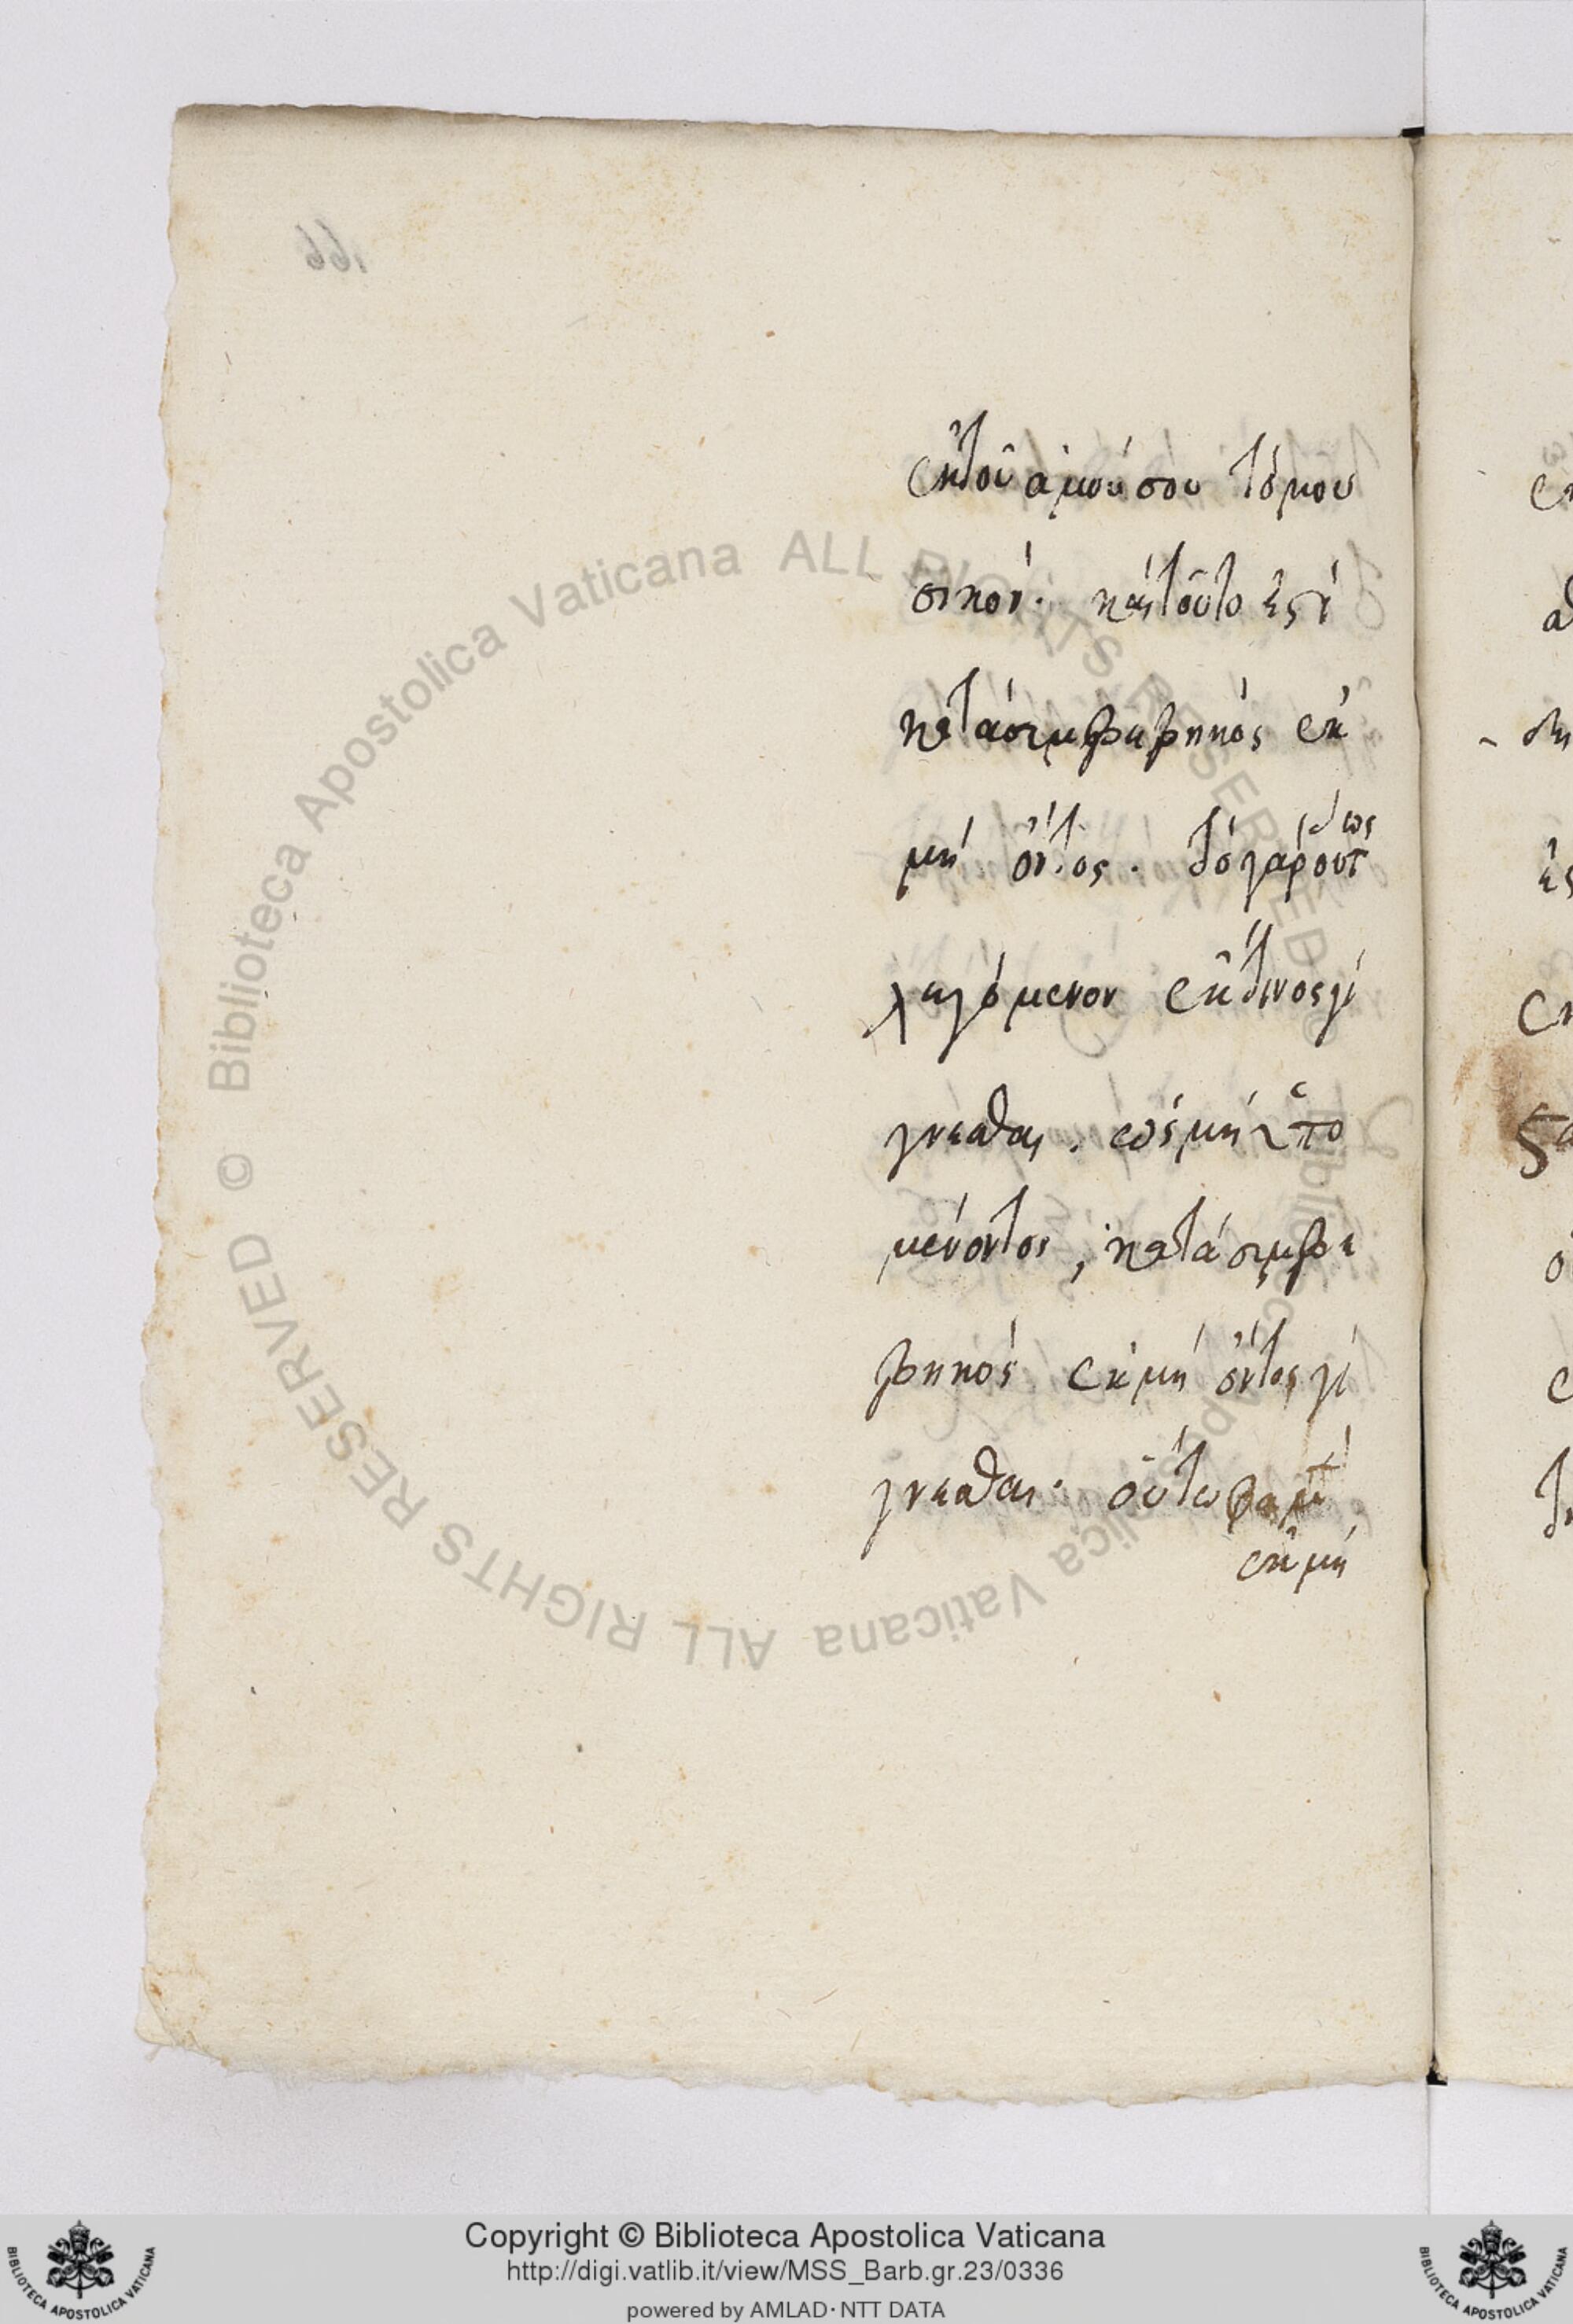 ἐκ τοῦ ἀμούσου τὸ μου
σικόν. καὶ τοῦτο ἐστὶ
κατὰ συμβεβηκὸς ἐκ
μὴ ὄντος. τὸ γὰρ οὕτως
λεγόμενον ἔκ τινος γί
γνεσθαι. ὡς μὴ ὑπο
μένοντος, κατὰ συμβε
βηκὸς ἐκ μὴ ὄντος γί
γνεσθαι. οὕτω φαμὲν
ἐκ μὴ
166
Copyright © Biblioteca Apostolica Vaticana
http://digi.vatlib.it/view/MSS_Barb.gr.23/0336
powered by AMLAD · NTT DATA
© Biblioteca Apostolica Vaticana ALL RIGHTS RESERVED
© Biblioteca Apostolica Vaticana ALL RIGHTS RESERVED
BIBLIOTECA APOSTOLICA VATICANA
BIBLIOTECA APOSTOLICA VATICANA